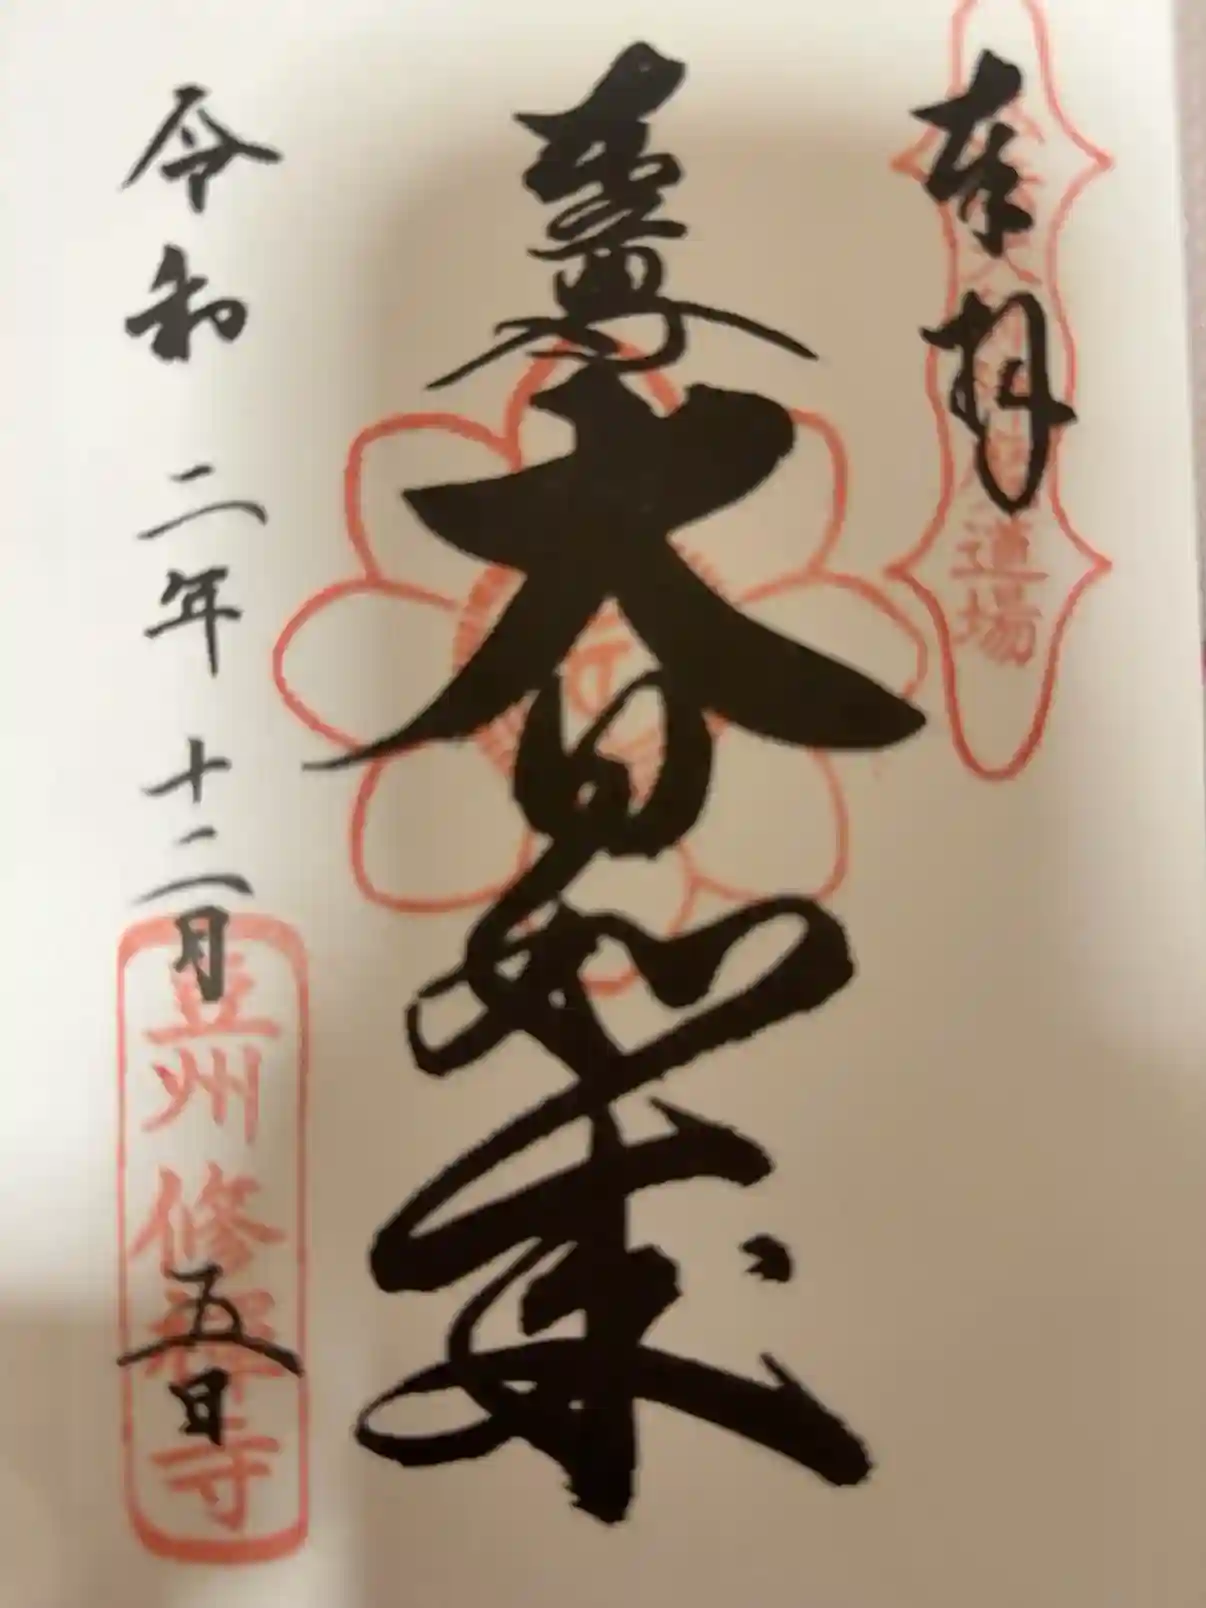 奉拝
大日如来
令和二年十二月五日
道場
豊州修禅寺